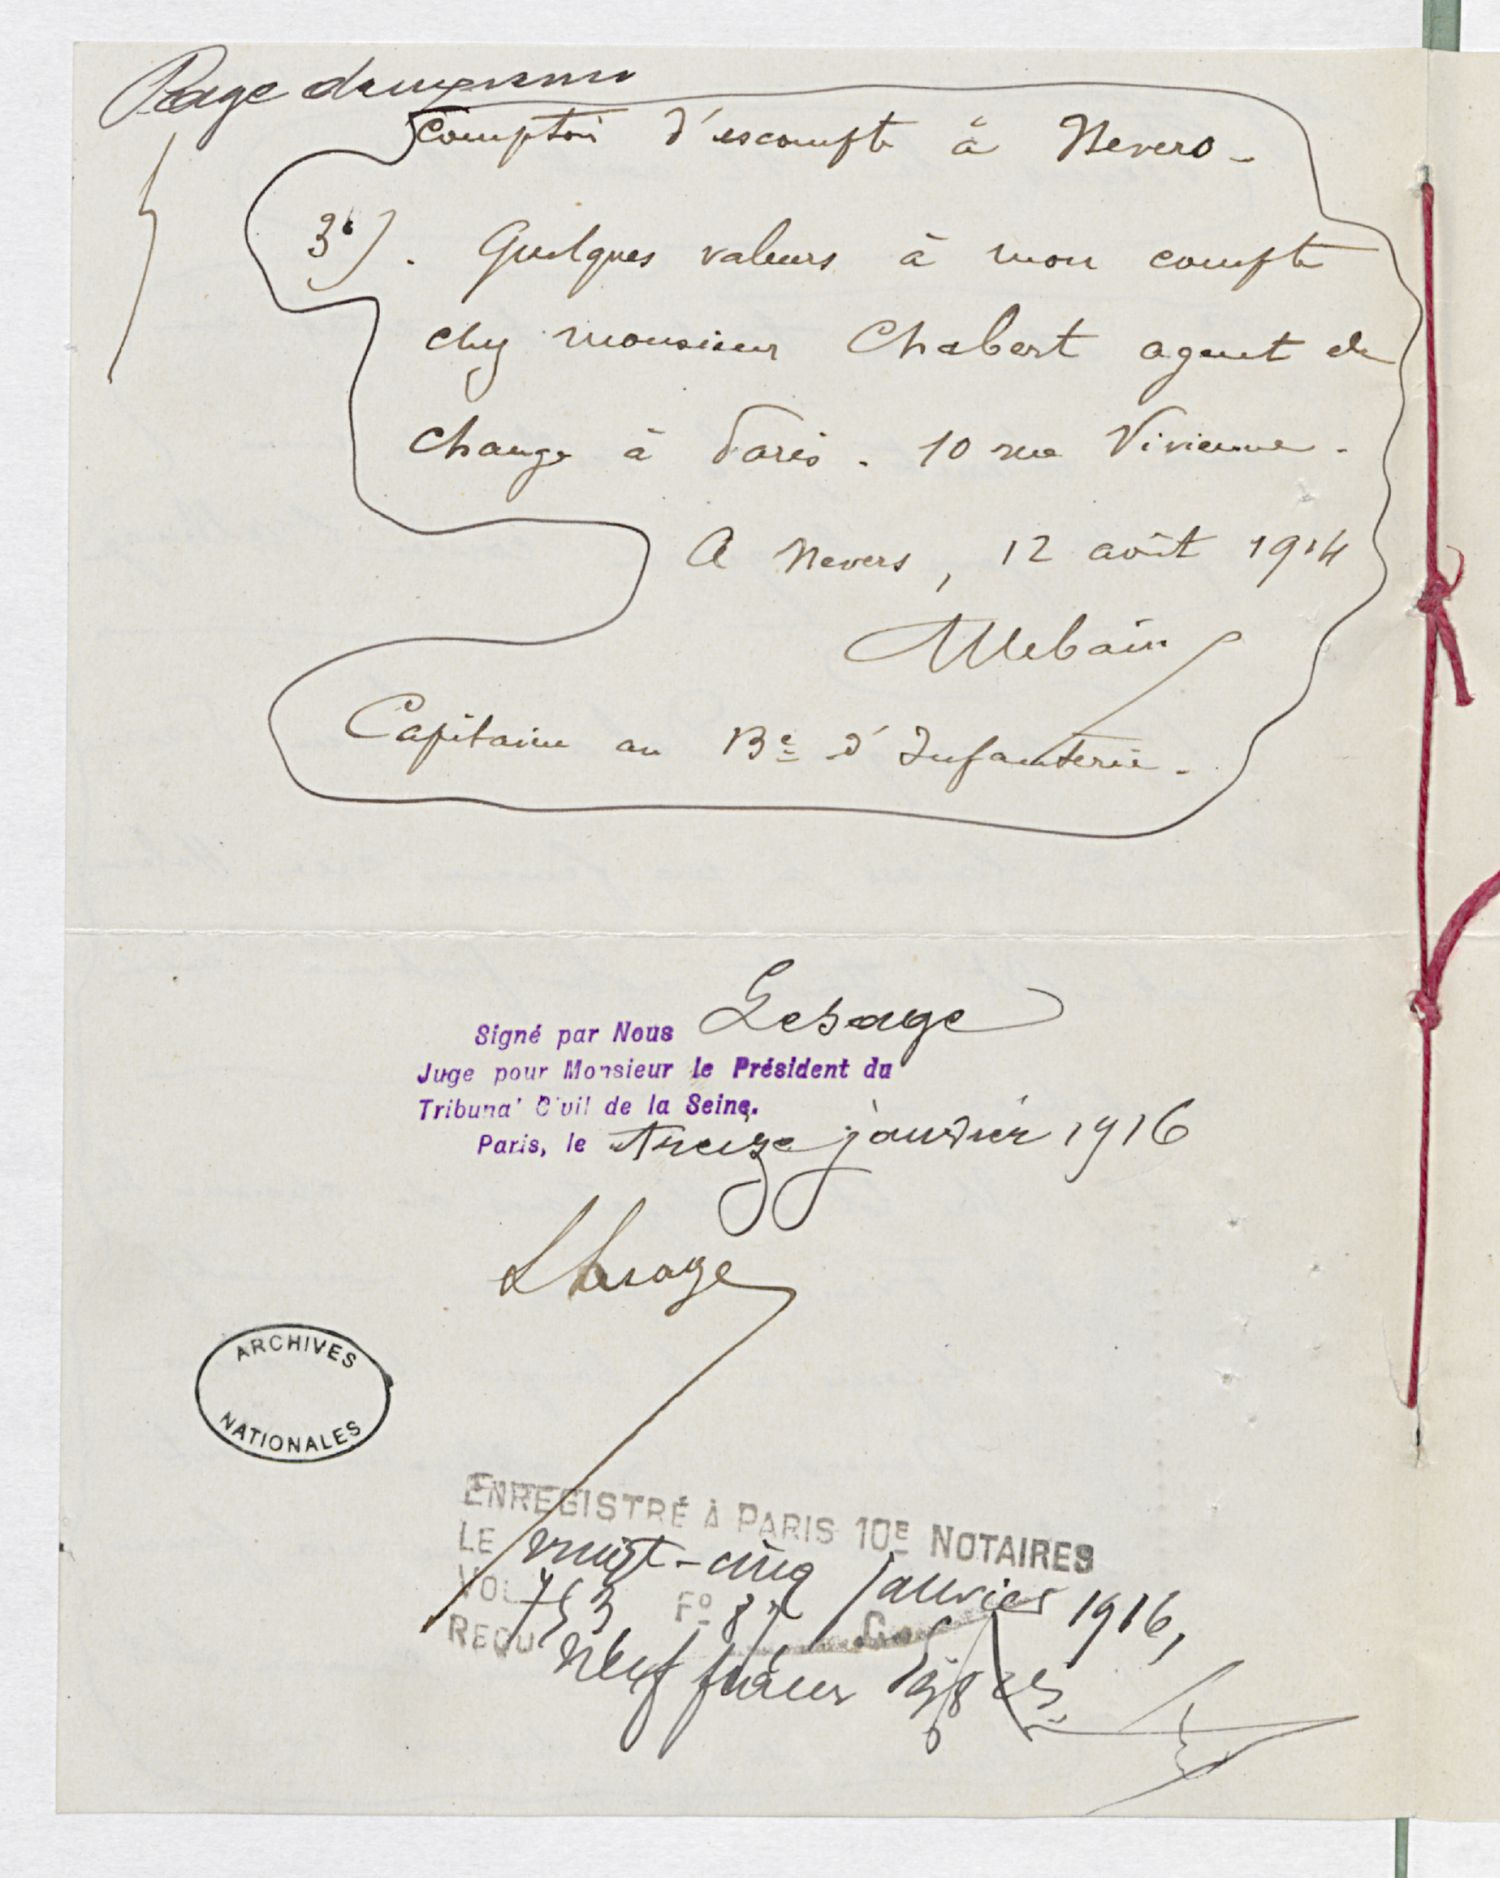 Page deuxième
Comptoir d'escompte à Nevers -
3°) . Quelques valeurs à mon compte
chez monsieur Chabert agent de
change à Paris . 10 rue Vivienne .
A Nevers , 12 août 1914
Capitaine au 13e d'Infanterie .
Signé par Nous Lesage
Juge pour Monsieur le Président du
Tribunal Civil de la Seine.
Paris, le treize janvier 1916
LLesage
ARCHIVES
NATIONALES
ENREGISTRÉ À PARIS 10E NOTAIRES
LE vingt-cinq janvier 1916,
VOL 753 Fo 87
REÇU Neuf francs 38 cs